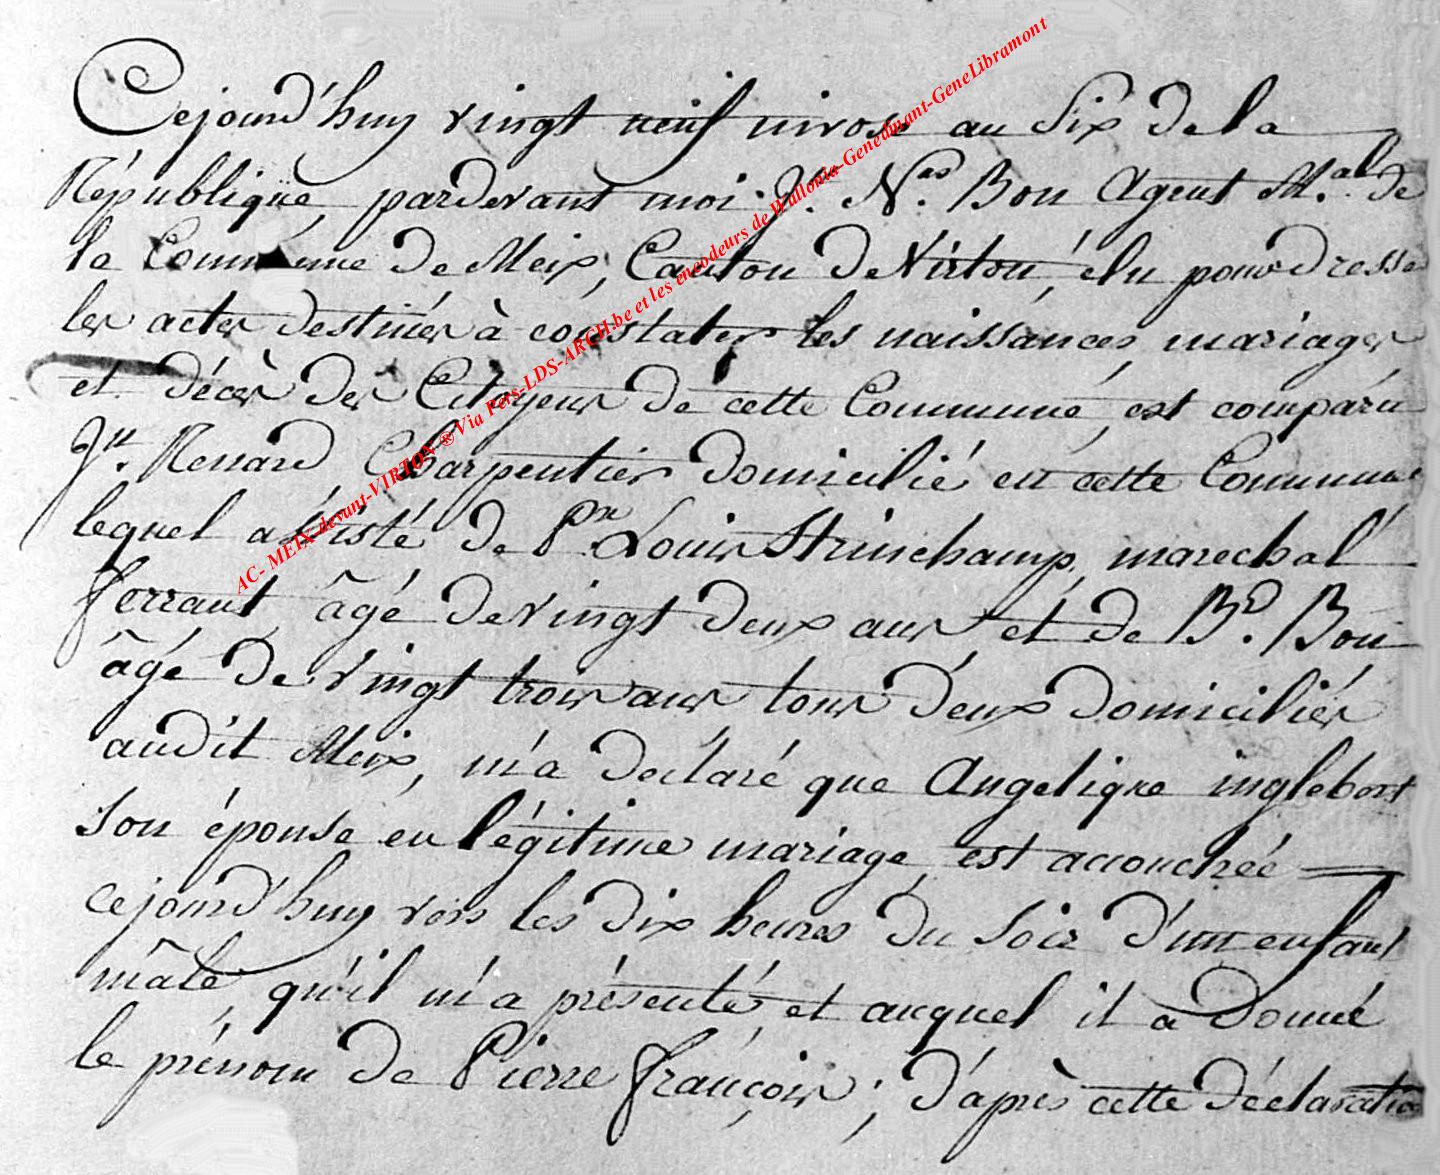 Cejourd'huy vingt neuf nivose an Six de la
République, pardevant moi J.n N.as Bon Agent M.al de
la Commune de Meix, Canton de Virton, élu pour dresser
les actes destinés à constater les naissances, mariages
et décès des Citoyens de cette Commune, est comparu
J.n Renard Charpentier domicilié en cette Commune
lequel assisté de P.re Louis Strinchamp, marechal
ferrant, âgé de vingt deux ans, et de B.d Bon
âgé de vingt trois ans tous deux domiciliés
audit Meix, m'a declaré que Angelique inglebert
son épouse en légitime mariage, est accouchée
cejourd'huy vers les dix heures du soir d'un enfant
mâle, qu'il m'a présenté, et auquel il a donné
le prénom de Pierre françois; d'après cette déclaration
AC- MEIX-devant-VIRTON ® Via Fers-LDS-ARCH.be et les encodeurs de Wallonia-Genedinant-GeneLibramont